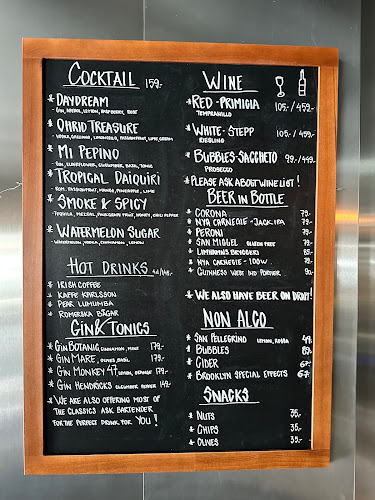 COCKTAIL 159.-
* DAYDREAM
GIN, APEROL, LEMON, RASPBERRY, ROSÉ
* OHRID TREASURE
VODKA, GALLIANO, LIMONCELLO, PASSIONFRUIT, LIME, CREAM
* MI PEPINO
GIN, ELDERFLOWER, CUCUMBER, BASIL, TONIC
* TROPICAL DAIQUIRI
RUM, PASSIONFRUIT, MANGO, PINEAPPLE, LIME
* SMOKE & SPICY
TEQUILA, MEZCAL, PASSIONFRUIT, HONEY, CHILI PEPPER
* WATERMELON SUGAR
WATERMELON, VODKA, CHAMPAGNE, LEMON
HOT DRINKS
* IRISH COFFEE
* KAFFE KARLSSON
* PEAR LUMUMBA
* ROMERSKA BÅGAR
GIN & TONICS
* GIN BOTANIC, CINNAMON, MINT 179.-
* GIN MARE, OLIVES, BASIL 179.-
* GIN MONKEY 47, LEMON, ORANGE 179.-
* GIN HENDRICKS CUCUMBER, PEPPER 149.-
* WE ARE ALSO OFFERING MOST OF
THE CLASSICS ASK BARTENDER
FOR THE PERFECT DRINK FOR YOU!
WINE
* RED - PRIMIGIA 105.-/459.-
TEMPRANILLO
* WHITE - STEPP 105.-/459.-
RIESLING
* BUBBLES - SACCHETO 99.-/449.-
PROSECCO
* PLEASE ASK ABOUT WINE LIST!
BEER IN BOTTLE
* CORONA 79.-
* NYA CARNEGIE - JACK IPA 79.-
* PERONI 79.-
* SAN MIGUEL GLUTEN FREE 79.-
* LIMHAMNS BRYGGERI 85.-
* NYA CARNEGIE - 100W 79.-
* GUINNESS WEST IND PORTER 90.-
* WE ALSO HAVE BEER ON DRAFT!
NON ALCO
* SAN PELLEGRINO LEMON, ROSSA 49.-
* BUBBLES 89.-
* CIDER 67.-
* BROOKLYN SPECIAL EFFECTS 67.-
SNACKS
* NUTS 35.-
* CHIPS 35.-
* OLIVES 35.-